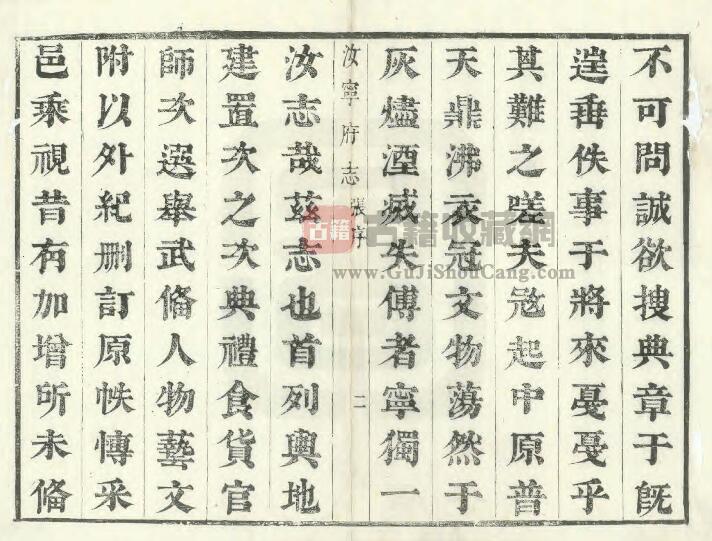 不可問誠欲搜典章于旣
逞垂佚事于將來戞戞乎
其難之嗟夫寇起中原普
天鼎沸衣冠文物蕩然于
灰燼湮滅失傳者寧獨一
汝寧府志 張序 二
汝志哉茲志也首列輿地
建置次之次典禮食貨官
師次選舉武俻人物藝文
附以外紀刪訂原帙愽采
邑乘視昔有加增所未俻
古籍 古籍收藏網
www.GuJiShouCang.com